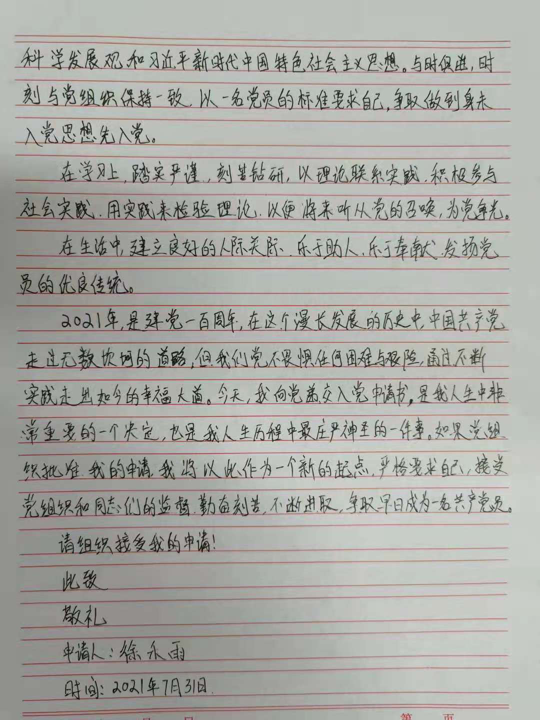 科学发展观和习近平新时代中国特色社会主义思想。与时俱进,时
刻与党组织保持一致,以一名党员的标准要求自己,争取做到身未
入党思想先入党。
在学习上,踏实严谨,刻苦钻研,以理论联系实践,积极参与
社会实践,用实践来检验理论,以便将来听从党的召唤,为党争光。
在生活中,建立良好的人际关际,乐于助人,乐于奉献,发扬党
员的优良传统。
2021年,是建党一百周年,在这个漫长发展的历史中,中国共产党
走过无数坎坷的道路,但我们党不畏惧任何困难与艰险,通过不断
实践走出如今的幸福大道。今天,我向党递交入党申请书,是我人生中非
常重要的一个决定,也是我人生历程中最庄严神圣的一件事。如果党组
织批准我的申请,我将以此作为一个新的起点,严格要求自己,接受
党组织和同志们的监督,勤奋刻苦,不断进取,争取早日成为一名共产党员。
请组织接受我的申请!
此致
敬礼
申请人:徐永雨
时间:2021年7月31日
第 页